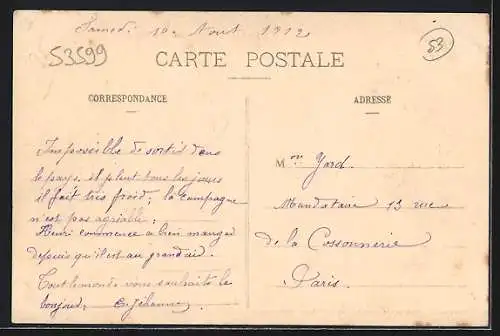 Samedi 10 Aout 1912
53599
53
CARTE POSTALE
CORRESPONDANCE
ADRESSE
Impossible de sortir dans
le pays, il pleut tous les jours
il fait très froid; la campagne
n'est pas agréable;
Henri commence a bien manger
depuis qu'il est au grand air.
Tout le monde vous souhaite le
bonjour,
Mon
Mandataire 13 rue
de la Cossonnerie
Paris.